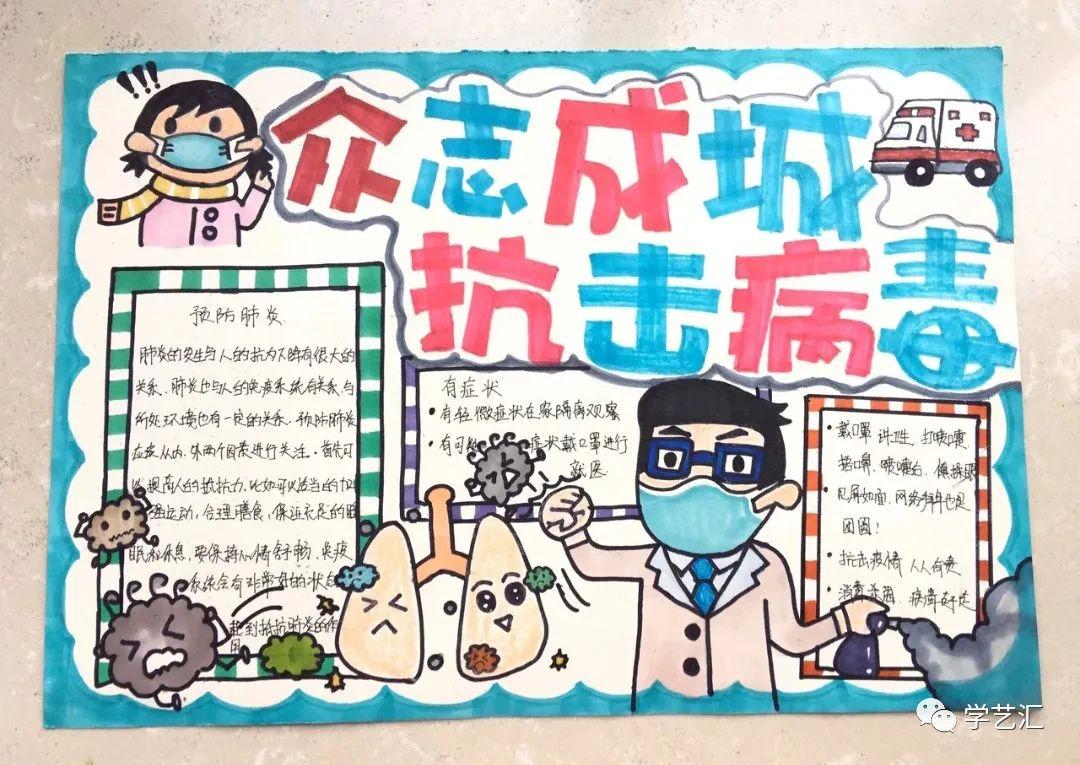 众志成城
抗击病毒
预防肺炎
肺炎的发生与人的抗力下降有很大的
关系、肺炎也与人的免疫系统有关系、与
所处环境也有一定的关系、预防肺炎
应从内、外两个因素进行关注。首先可
以提高人的抵抗力、比如可以适当的加
强运动，合理膳食、保证充足的睡
眠和休息，要保持心情舒畅、免疫
系统会有非常好的状态
起到抵抗肺炎的作
用
有症状
• 有轻微症状在家隔离观察
• 有可 症状戴口罩进行
就医
• 戴口罩 讲卫生、打喷嚏
捂口鼻、喷嚏后、慎揉眼
见屏如面、网络拜年也是
团圆！
• 抗击疫情 人人有责
消毒杀菌、病毒
学艺汇